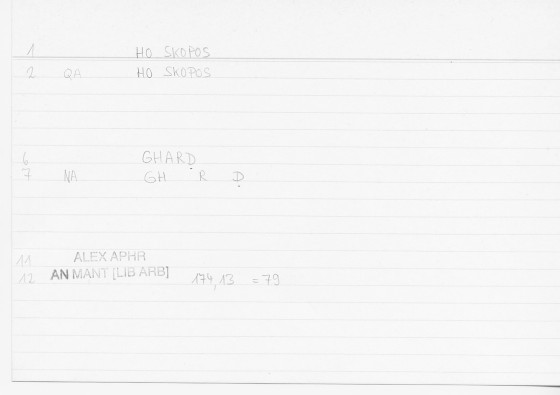 1 HO SKOPOS
2 QA HO SKOPOS
6 GHARḌ
7 NA GH R Ḍ
11 ALEX APHR
12 AN MANT [LIB ARB] 174,13 = 79